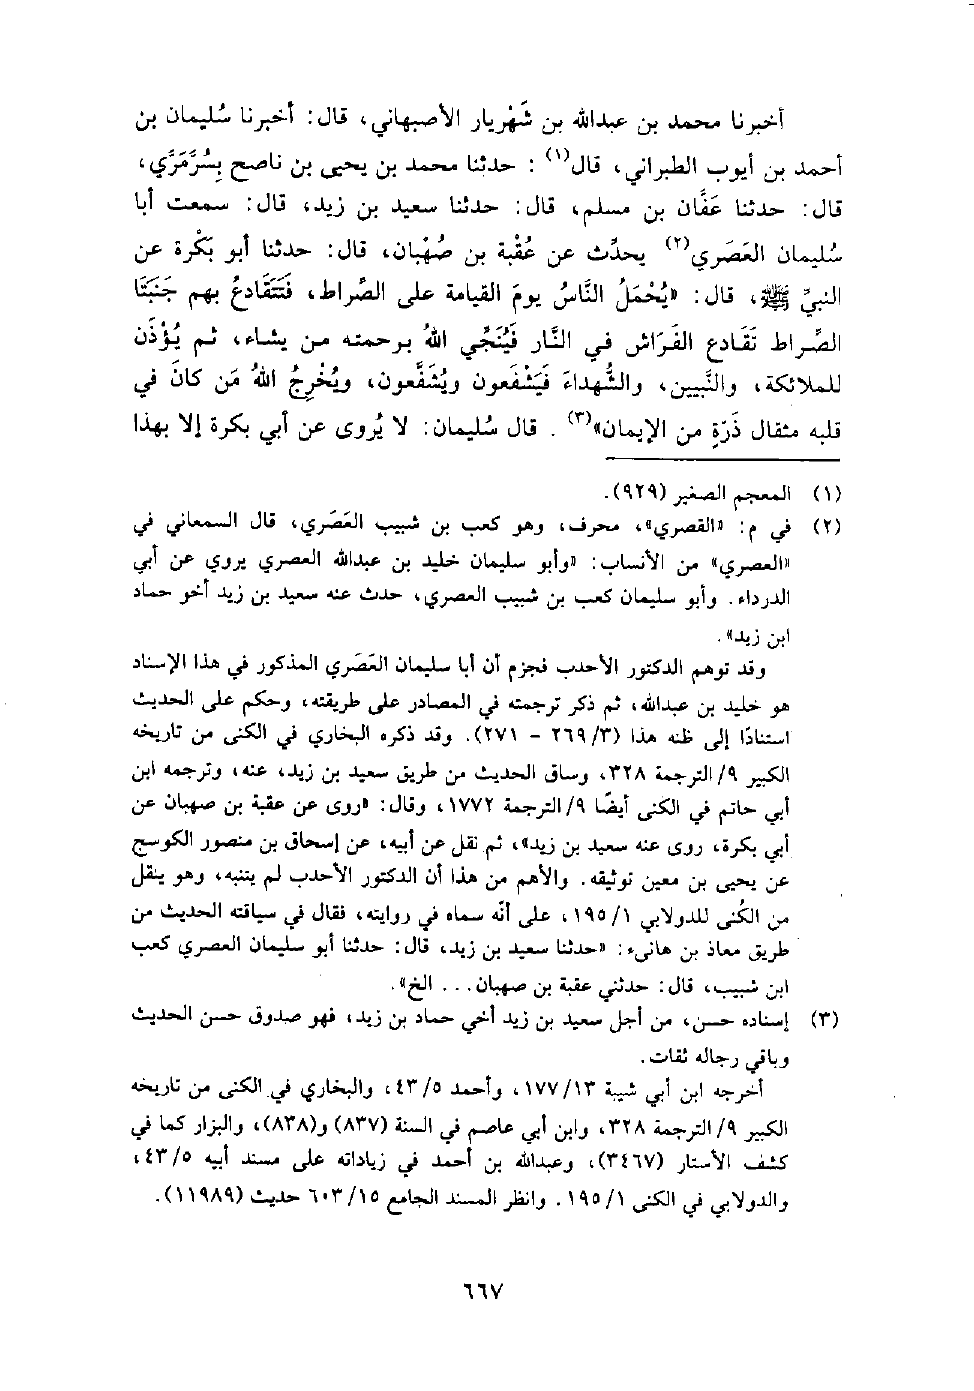 أخبرنا محمد بن عبدالله بن شَهْريار الأصبهاني، قال: أخبرنا سُليمان بن
أحمد بن أيوب الطبراني، قال(١) : حدثنا محمد بن يحيى بن ناصح بِسُرَّمَرَّي،
قال: حدثنا عَفَّان بن مسلم، قال: حدثنا سعيد بن زيد، قال: سمعت أبا
سُليمان العَصَري(٢) يحدِّث عن عُقْبة بن صُهْبان، قال: حدثنا أبو بَكْرة عن
النبيِّ ﷺ، قال: «يُحْمَلُ النَّاسُ يومَ القيامة على الصِّراط، فَتَتَقَادعُ بهم جَنَبَتَا
الصِّراط تَقَادع الفَرَاش في النَّار فَيُنَجِّي اللهُ برحمته من يشاء، ثم يُؤْذَن
للملائكة، والنَّبيين، والشُّهداءَ فَيَشْفَعون ويُشَفَّعون، ويُخْرِجُ اللهُ مَن كانَ في
قلبه مثقال ذَرّةٍ من الإيمان»(٣) . قال سُليمان: لا يُروى عن أبي بكرة إلا بهذا
(١) المعجم الصغير (٩٢٩).
(٢) في م: «القصري»، محرف، وهو كعب بن شبيب العَصَري، قال السمعاني في
«العصري» من الأنساب: «وأبو سليمان خليد بن عبدالله العصري يروي عن أبي
الدرداء. وأبو سليمان كعب بن شبيب العصري، حدث عنه سعيد بن زيد أخو حماد
ابن زيد».
وقد توهم الدكتور الأحدب فجزم أن أبا سليمان العَصَري المذكور في هذا الإسناد
هو خليد بن عبدالله، ثم ذكر ترجمته في المصادر على طريقته، وحكم على الحديث
استنادًا إلى ظنه هذا (٣/ ٢٦٩ - ٢٧١). وقد ذكره البخاري في الكنى من تاريخه
الكبير ٩/ الترجمة ٣٢٨، وساق الحديث من طريق سعيد بن زيد، عنه، وترجمه ابن
أبي حاتم في الكنى أيضًا ٩/ الترجمة ١٧٧٢، وقال: «روى عن عقبة بن صهبان عن
أبي بكرة، روى عنه سعيد بن زيد»، ثم نقل عن أبيه، عن إسحاق بن منصور الكوسج
عن يحيى بن معين توثيقه. والأهم من هذا أن الدكتور الأحدب لم يتنبه، وهو ينقل
من الكُنى للدولابي ١/ ١٩٥، على أنّه سماه في روايته، فقال في سياقته الحديث من
طريق معاذ بن هانىء: «حدثنا سعيد بن زيد، قال: حدثنا أبو سليمان العصري كعب
ابن شبيب، قال: حدثني عقبة بن صهبان... الخ».
(٣) إسناده حسن، من أجل سعيد بن زيد أخي حماد بن زيد، فهو صدوق حسن الحديث
وباقي رجاله ثقات.
أخرجه ابن أبي شيبة ١٣/ ١٧٧، وأحمد ٥/ ٤٣، والبخاري في الكنى من تاريخه
الكبير ٩/ الترجمة ٣٢٨، وابن أبي عاصم في السنة (٨٣٧) و(٨٣٨)، والبزار كما في
كشف الأستار (٣٤٦٧)، وعبدالله بن أحمد في زياداته على مسند أبيه ٥/ ٤٣،
والدولابي في الكنى ١/ ١٩٥. وانظر المسند الجامع ١٥/ ٦٠٣ حديث (١١٩٨٩).
٦٦٧